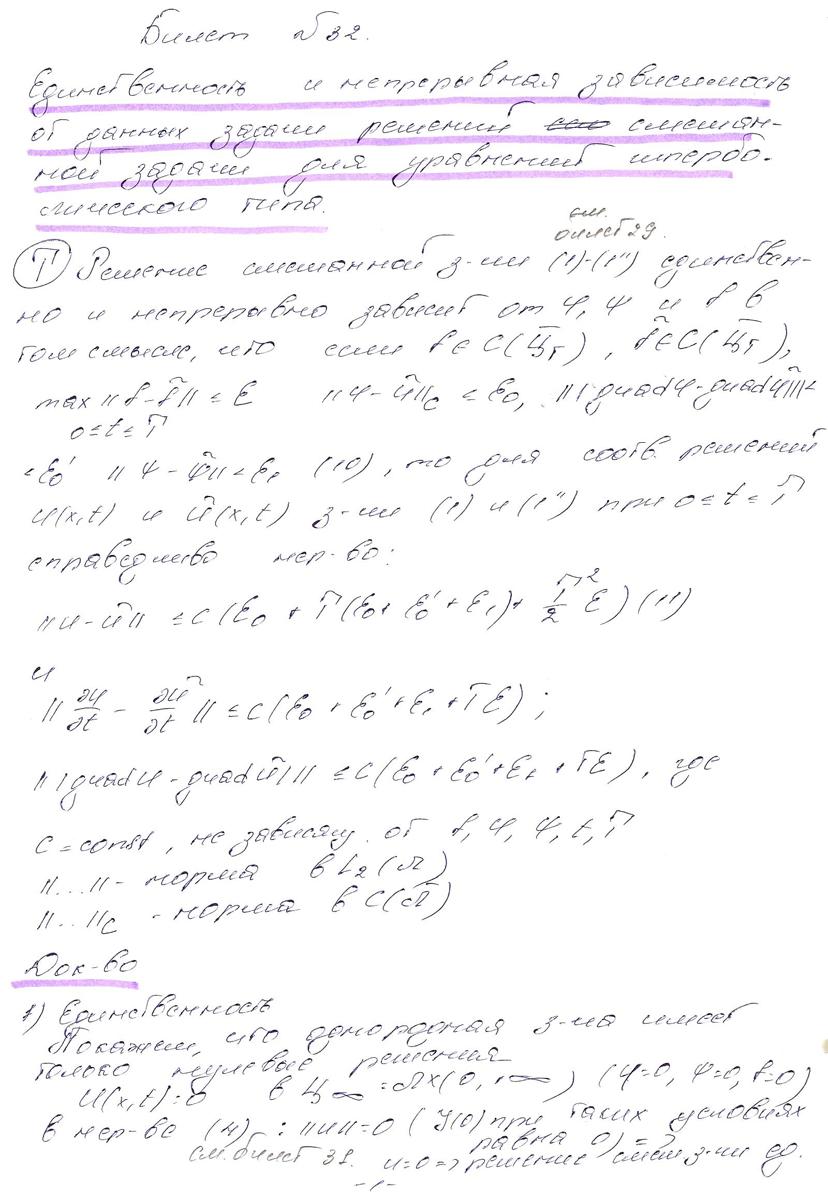 Билет №32.
Единственность и непрерывная зависимость
от данных задачи решений смешан-
ной задачи для уравнений гипербо-
лического типа.
см.
билет 29.
Т Решение смешанной з-чи (1)-(1'') единствен-
но и непрерывно зависит от φ, ψ и f в
том смысле, что если f ∈ C(Ц̄_T), f̃ ∈ C(Ц̄_T),
max ||f - f̃|| ≤ ε ||φ - φ̃||_C ≤ ε₀, |||grad φ - grad φ̃||| ≤
0≤t≤T
≤ ε₀' ||ψ - ψ̃|| ≤ ε₁ (10), то для соотв. решений
u(x,t) и ũ(x,t) з-чи (1) и (1'') при 0≤t≤T
справедливо нер-во:
||u - ũ|| ≤ C(ε₀ + T(ε₀ + ε₀' + ε₁) + T²/2 ε) (11)
и
||∂u/∂t - ∂ũ/∂t|| ≤ C(ε₀ + ε₀' + ε₁ + Tε);
|||grad u - grad ũ||| ≤ C(ε₀ + ε₀' + ε₁ + Tε), где
C = const, не зависящ. от f, φ, ψ, t, T
||...|| - норма в L₂(Ω)
||...||_C - норма в C(Ω̄)
Док-во
1) Единственность
Покажем, что однородная з-ча имеет
только нулевые решения
u(x,t)=0 в Ц∞ = Ω×(0,+∞) (φ=0, ψ=0, f=0)
в нер-ве : ||u||=0 (J(0) при таких условиях
равна 0) =>
см. билет 31. u=0 => решение смеш з-чи ед.
-1-